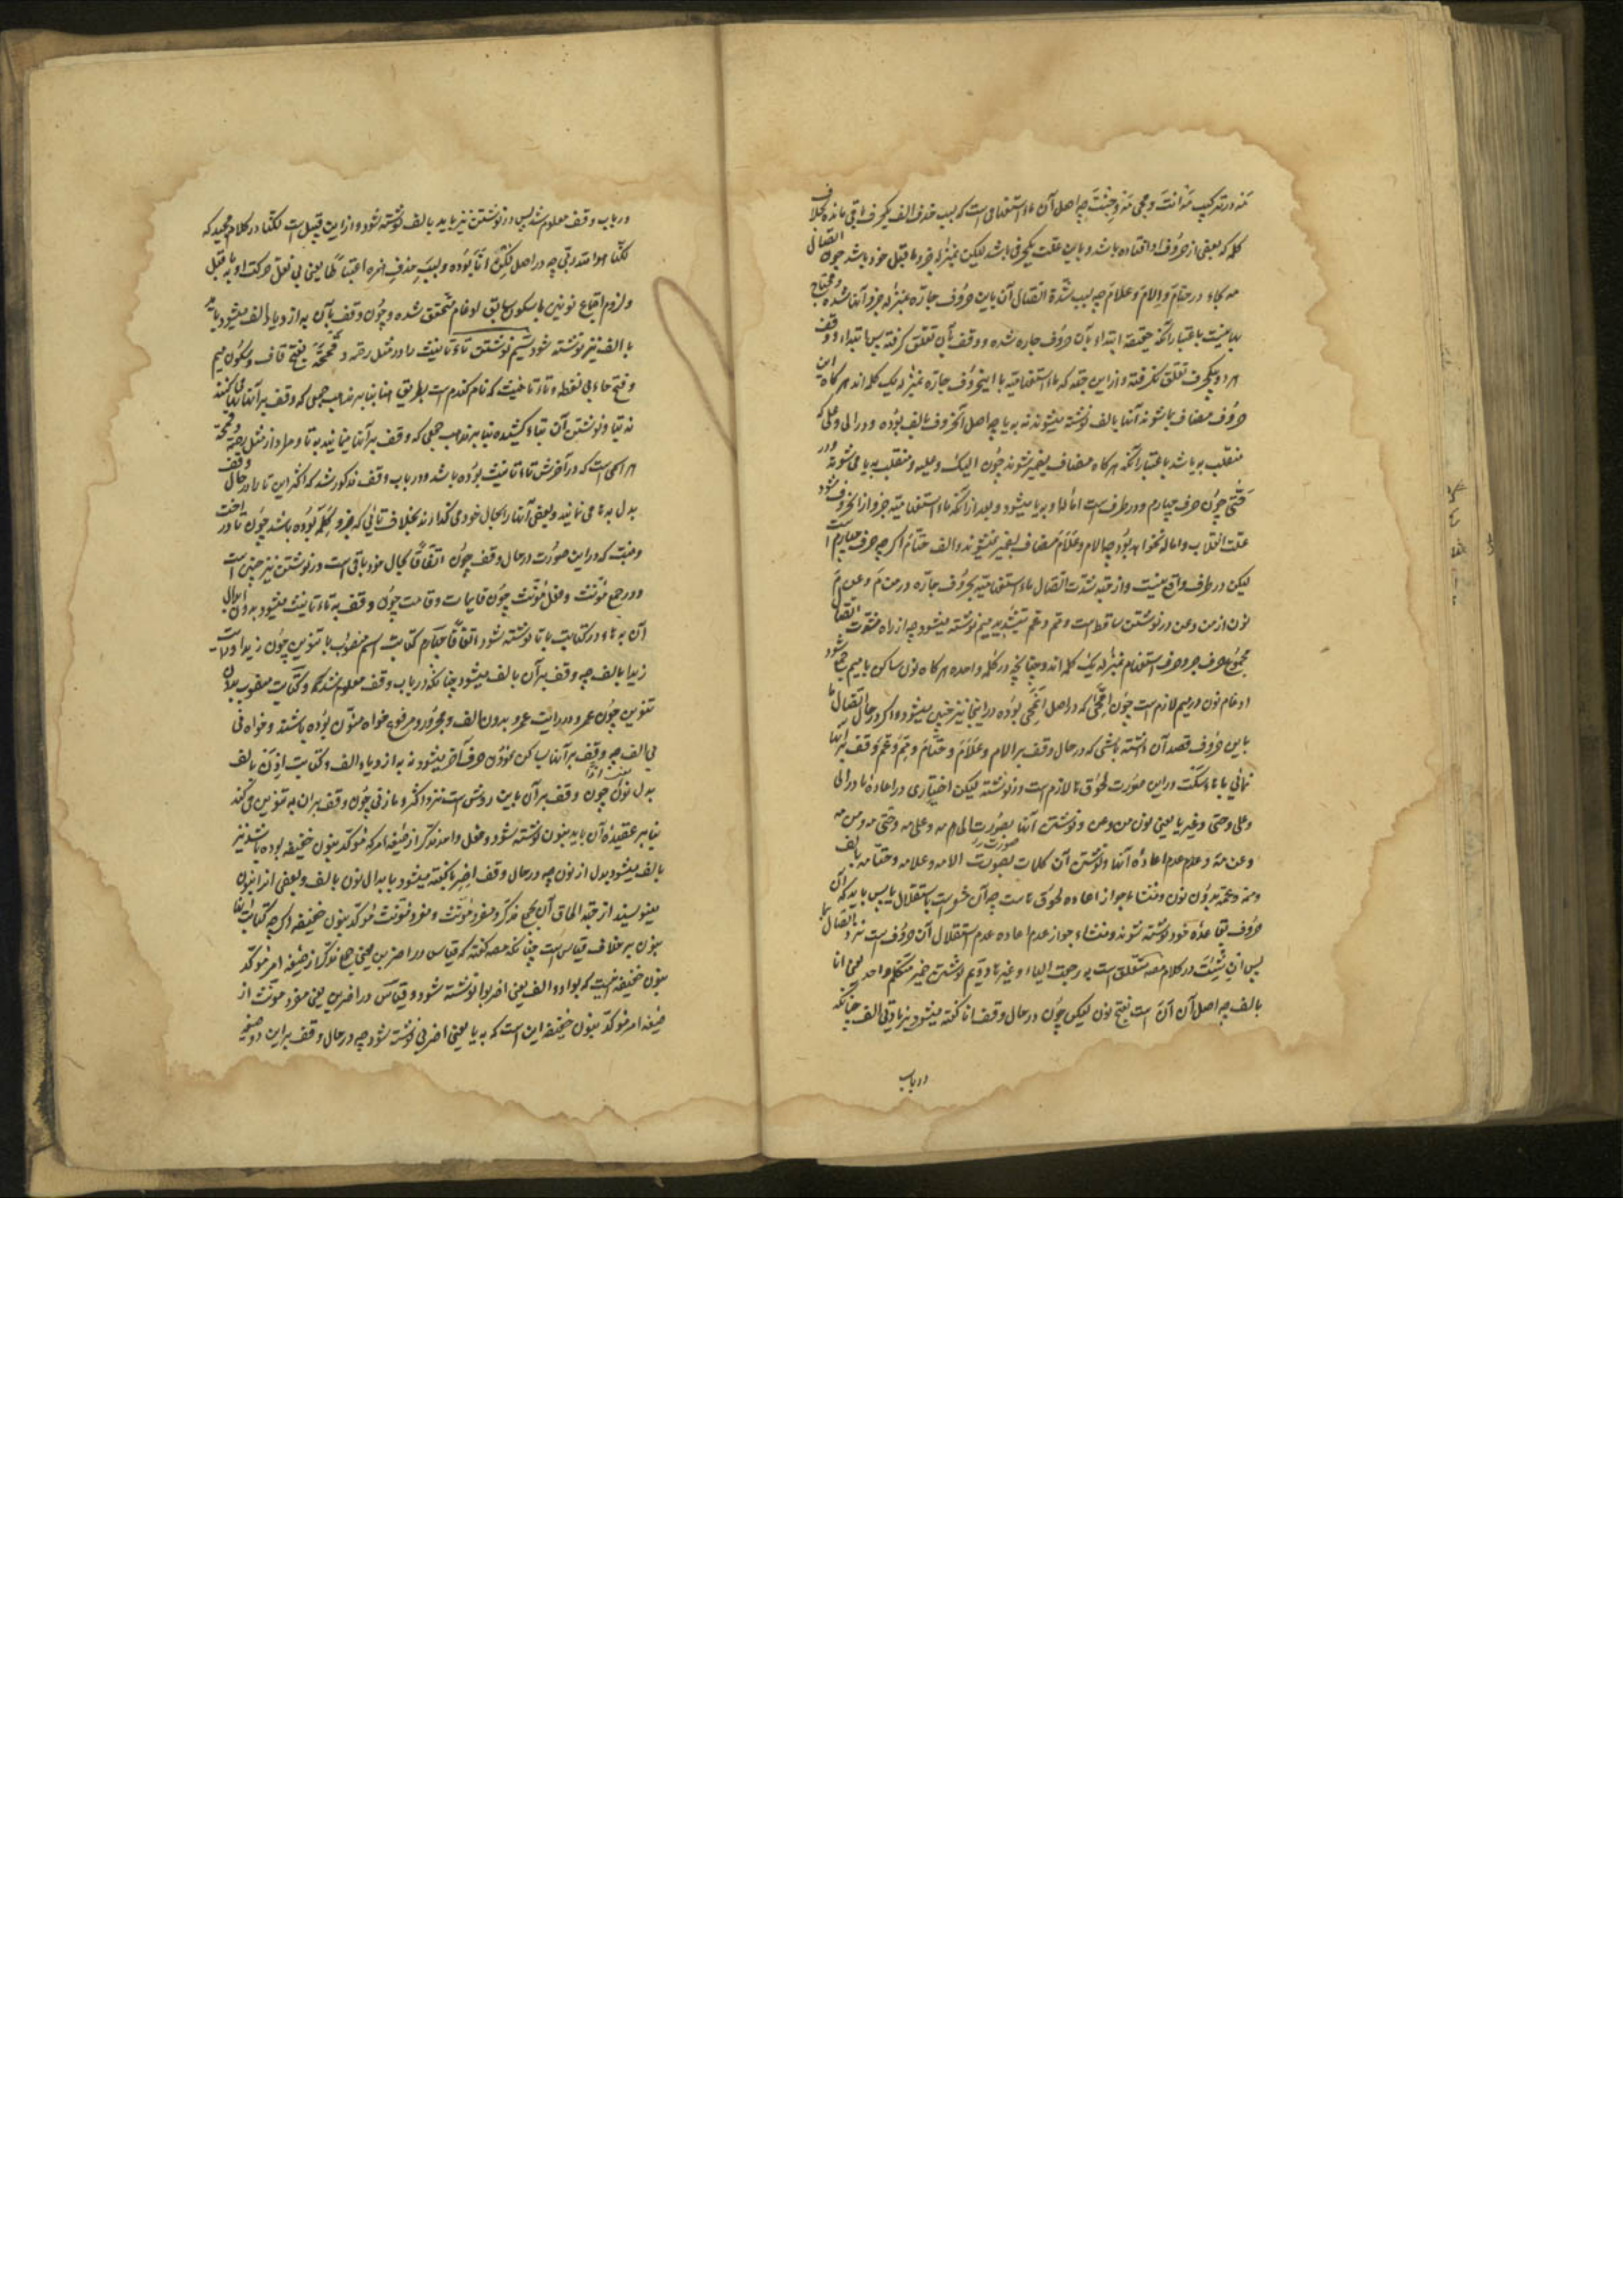 مه در ترکیب مه انت و مجی مه و جئت چه اصل آن ماء استفهامی است که بسبب حذف الف یکحرف باقی مانده بخلاف
کلمه که بعضی از حروف او افتاده باشد و باین علت یکحرفی باشد لیکن بمنزله جزو ماقبل خود باشد چون اتصال
مه بجاء در حتام و الام و علام چه بسبب شدة اتصال آن باین حروف جاره بمنزله جزو آنها شده و محتاج
بهاء نیست باعتبار آنکه حقیقة ابتداء بآن حروف جاره شده و وقف بآن تعلق گرفته پس ابتداء و وقف
هر دو بیکحرف تعلق نگرفته و از این جهة که ماء استفهامیه با این حروف جاره بمنزله یک کلمه اند هرگاه این
حروف مضاف بما شوند آنها بالف نوشته میشوند نه بیا چه اصل آنحروف بالف بوده و در الی و علی که
منقلب به یا شد باعتبار آنکه هرگاه مضاف بضمیر شوند چون الیک و علیه منقلب به یا می شوند و در
حتی چون حرف چهارم و در طرف است اماله او به یا میشود و بعد از آنکه ماء استفهامیه جزو از آنحروف شود
علت انقلاب و اماله نخواهد بود چه الام و علام مضاف بضمیر نمیشوند و الف حتام اگر چه حرف چهارم است
لیکن در طرف واقع نیست و از جهة شدت اتصال ماء استفهامیه بحروف جاره در من م و عن م
نون از من و عن در نوشتن ساقط است و مم و عم بتشدید میم نوشته میشود چه از راه شدت اتصال
مجموع حرف جر و حرف استفهام بمنزله یک کلمه اند و چنانچه در کلمه واحده هرگاه نون ساکن با میم جمع شود
ادغام نون در میم لازم است چون امحی که در اصل انمحی بوده در اینجا نیز چنین میشود و اگر در حال اتصال ما
باین حروف قصد آن داشته باشی که در حال وقف بر الام و علام و حتام و مم و عم وقف بر آنها
نمائی با هاء سکت در این صورت لحوق ها لازم است در نوشته لیکن اختیاری در اعاده یا در الی
و علی و حتی و غیر یا یعنی نون من و عن و نوشتن آنها بصورت الی مه و علی مه و حتی مه و من مه
و عن مه و عدم اعاده آنها و نوشتن آن کلمات بصورت الامه و علامه و حتامه بالف
و ممه و عمه بدون نون و منشاء جواز اعاده لحوق ها ست چه آن مشعر است باستقلال ما پس باید که آن
حروف بقاعده خود نوشته شوند و منشاء جواز عدم اعاده عدم استقلال آن حروف است نزد اتصال بما
پس ان شئت در کلام مصه متعلق است به رجعت الیاء و غیرها دویم نوشتن ضمیر متکلم واحد یعنی انا
بالف چه اصل آن اَنَ است بفتح نون لیکن چون در حال وقف انا گفته میشود بزیادتی الف چنانکه
در باب
در باب وقف معلوم شد پس در نوشتن نیز باید بالف نوشته شود و از این قبیل است لکنا در کلام مجید که
لکنا هو الله ربی چه در اصل لکن انا بوده و بسبب حذف همزه اعتباطا یعنی بی نقل حرکت او به ماقبل
و لزوم اجتماع نونین با سکون سابق ادغام متحقق شده و چون وقف بآن به ازدیاد الف میشود باید
با الف نیز نوشته شود سیم نوشتن تاء تأنیث را در مثل رحمه و قمحه بفتح قاف و سکون میم
و فتح حاء بی نقطه و تاء تأنیث که نام گندم است بطریق ها بنابر مذهب جمعی که وقف بر آنها بها می کنند
نه بتا و نوشتن آن بتاء کشیده بنا بر مذهب جمعی که وقف بر آنها مینمایند به تا و مراد از مثل رحمة و قمحة
هر اسمی است که در آخرش تاء تأنیث بوده باشد و در باب وقف مذکور شد که اکثر این تا را در حال وقف
بدل به ها می نمایند و بعضی آنها را بحال خود می گذارند بخلاف تائی که جزو کلمه بوده باشد چون تا در اخت
و بنت که در این صورت در حال وقف چون اتفاقا بحال خود باقی است در نوشتن نیز چنین است
و در جمع مؤنث و فعل مؤنث چون قایمات و قامت چون وقف به تاء تأنیث میشود بدون ابدال
آن به هاء در کتابت با تا نوشته شود اتفاقا چهارم کتابت اسم منصوب با تنوین چون زیدا و رایت
زیدا بالف چه وقف بر آن بالف میشود چنانکه در باب وقف معلوم شد و کتابت منصوب بدون
تنوین چون عمر و در رایت عمر بدون الف و مجرور و مرفوع خواه منون بوده باشند و خواه نی
بی الف چه وقف بر آنها بساکن نمودن حرف آخر میشود نه به ازدیاد الف و کتابت اذن بالف
بدل نون چون وقف بر آن باین روش است نزد اکثر و مازنی چون وقف بر آن به تنوین می کند
بنا بر عقیده آن باید بنون نوشته شود و فعل واحد مذکر از صیغه امر که مؤکد بنون خفیفه بوده باشد نیز
بالف میشود بدل از نون چه در حال وقف اضربا گفته میشود با بدال نون بالف و بعضی اضربن را بنون
مینویسند از جهة الحاق آن بجمع مذکر و مفرد مؤنث و مفرد مؤنث مؤکد بنون خفیفه اگر چه کتابت آنها
بنون بر خلاف قیاس است چنانکه مصه گفته که قیاس در اضربن یعنی جمع مذکر از صیغه امر مؤکد
بنون خفیفه اینست که بواو و الف یعنی اضربوا نوشته شود و قیاس در اضربن یعنی مفرد مؤنث از
صیغه امر مؤکد بنون خفیفه این است که به یا یعنی اضربی نوشته شود چه در حال وقف بر این دو صیغه